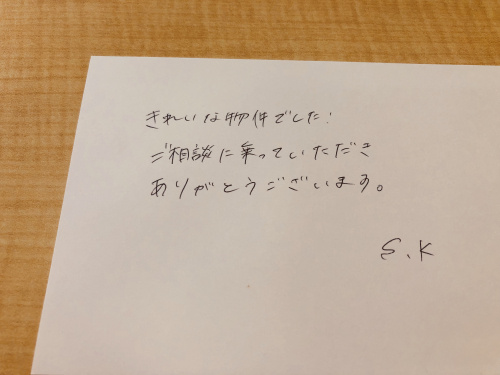 きれいな物件でした!
ご相談に乗っていただき
ありがとうございます。
S.K